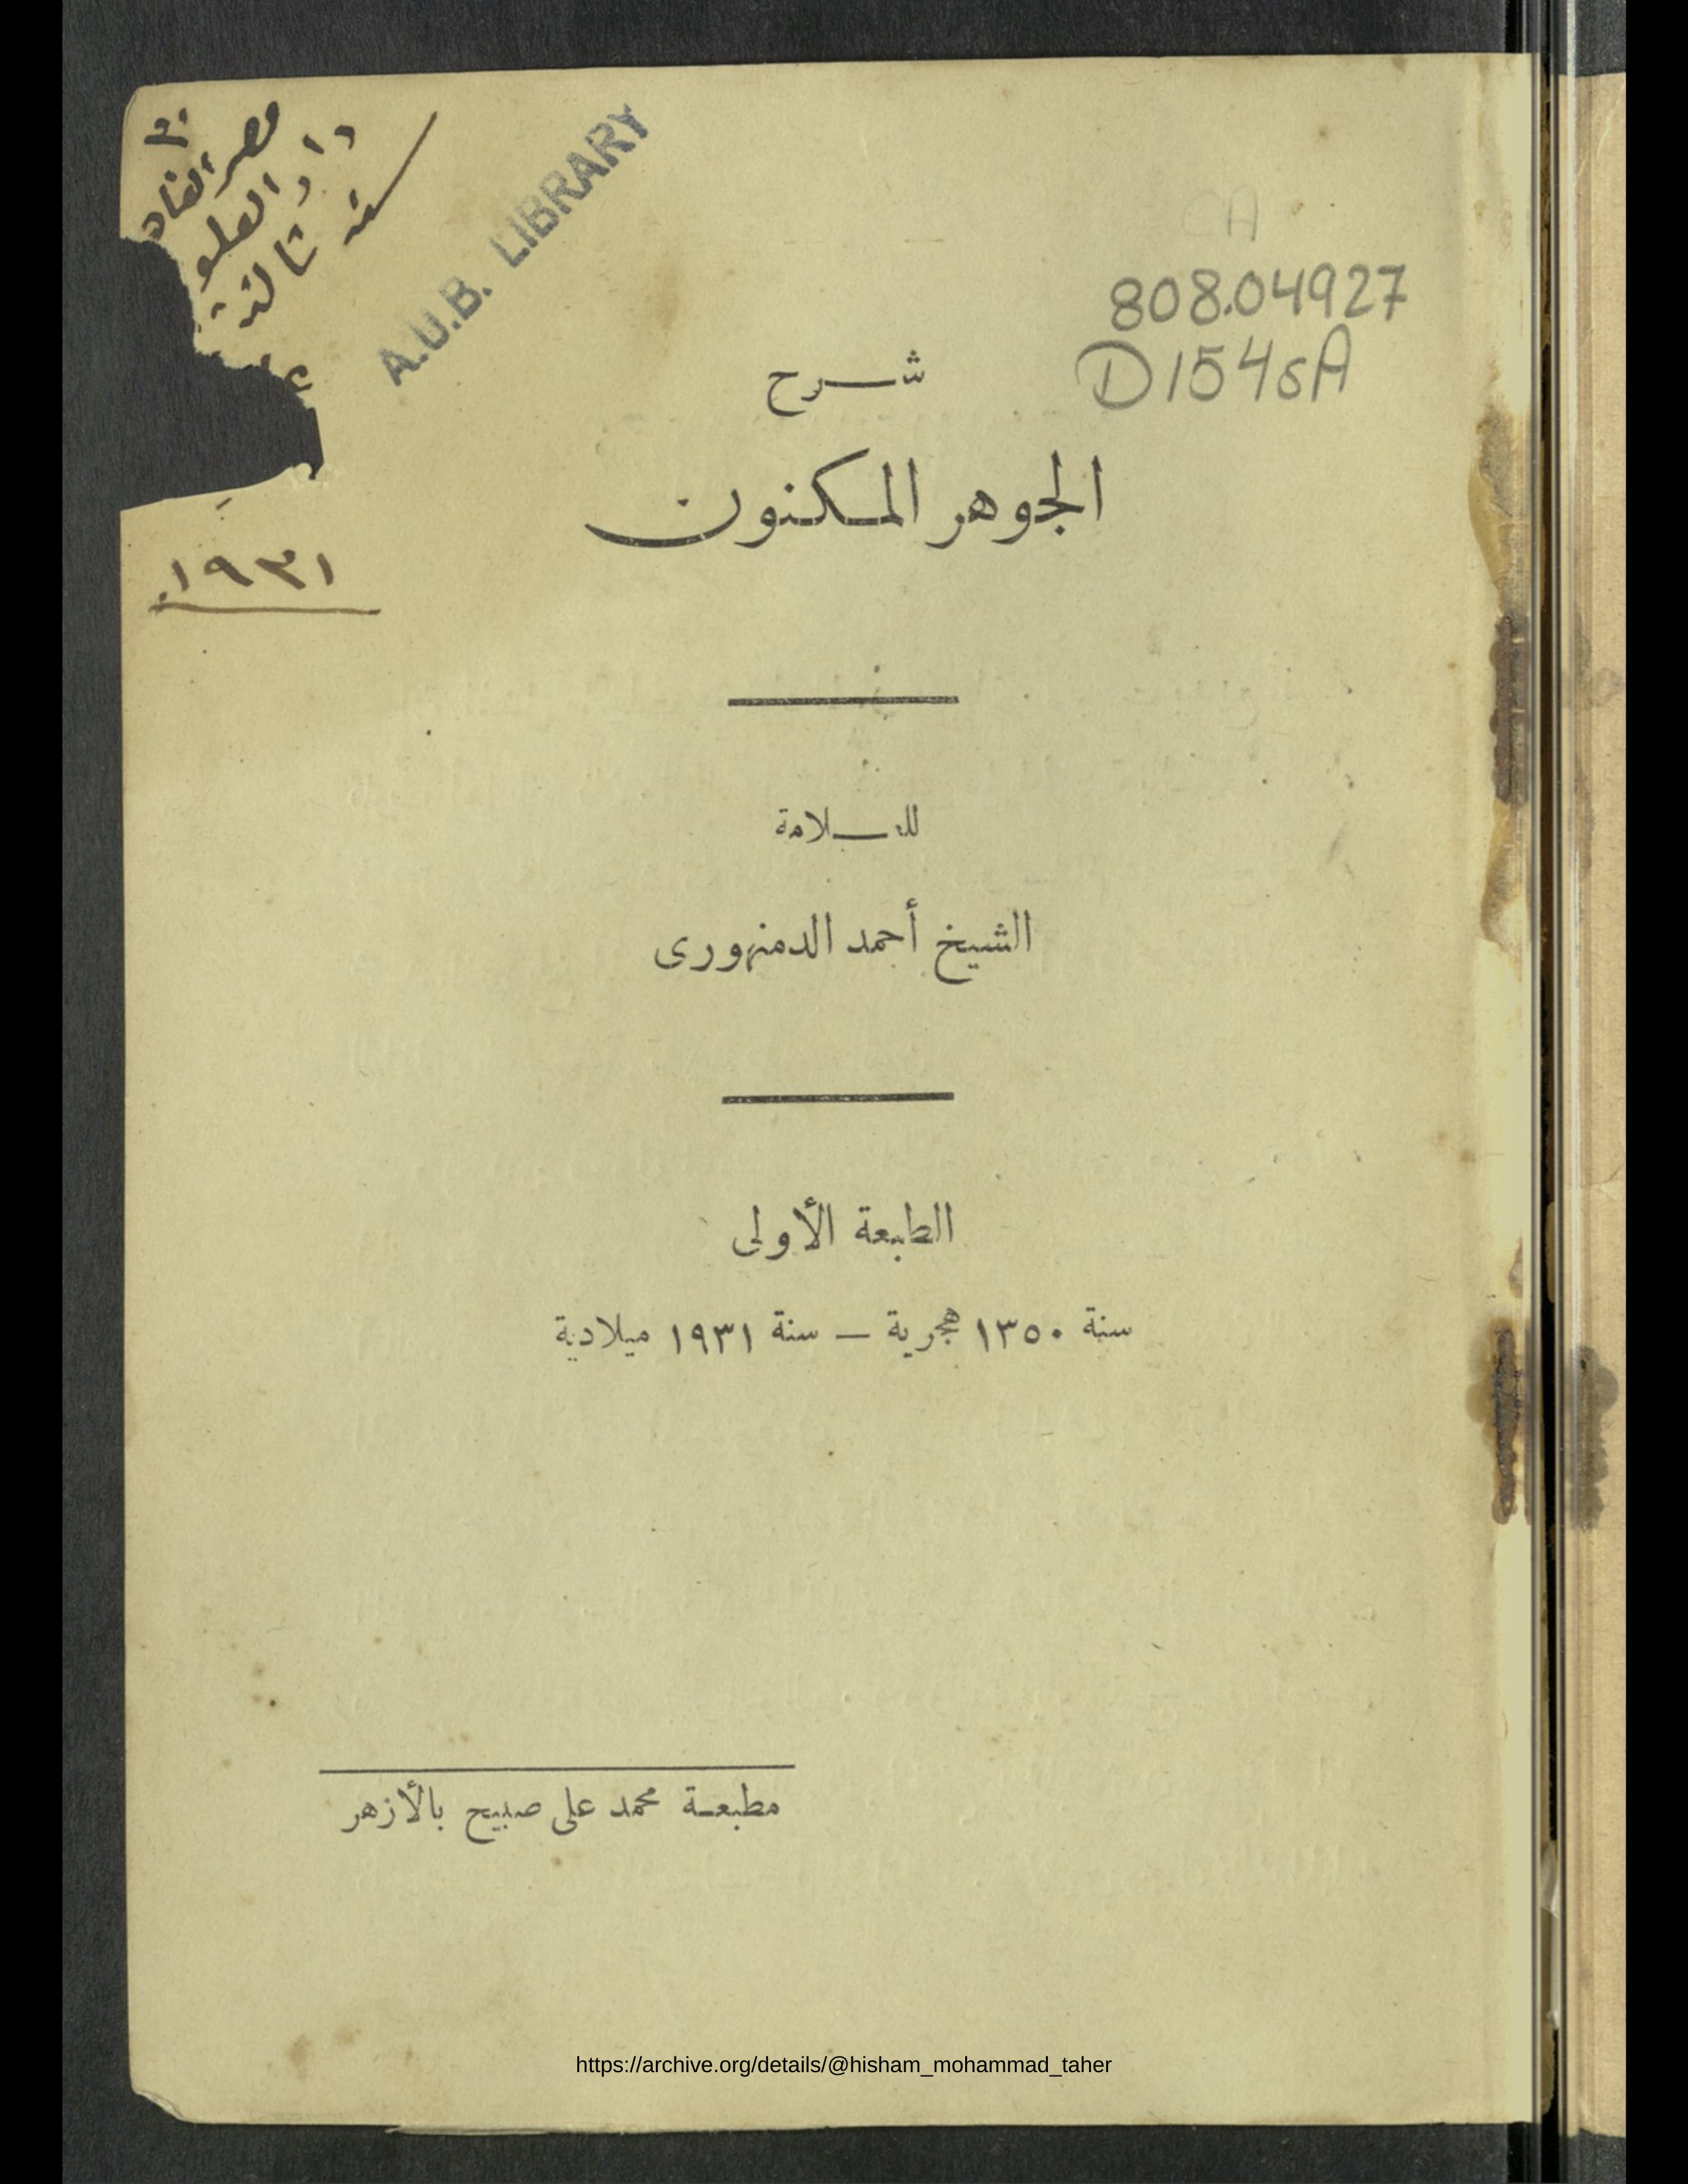 دار العلو
سنة ثالثة
١٩٣١
A.U.B. LIBRARY
CA
808.04927
D154sA
شرح
الجوهر المكنون
للعلامة
الشيخ أحمد الدمنهورى
الطبعة الأولى
سنة ١٣٥٠ هجرية — سنة ١٩٣١ ميلادية
مطبعة محمد على صبيح بالأزهر
https://archive.org/details/@hisham_mohammad_taher